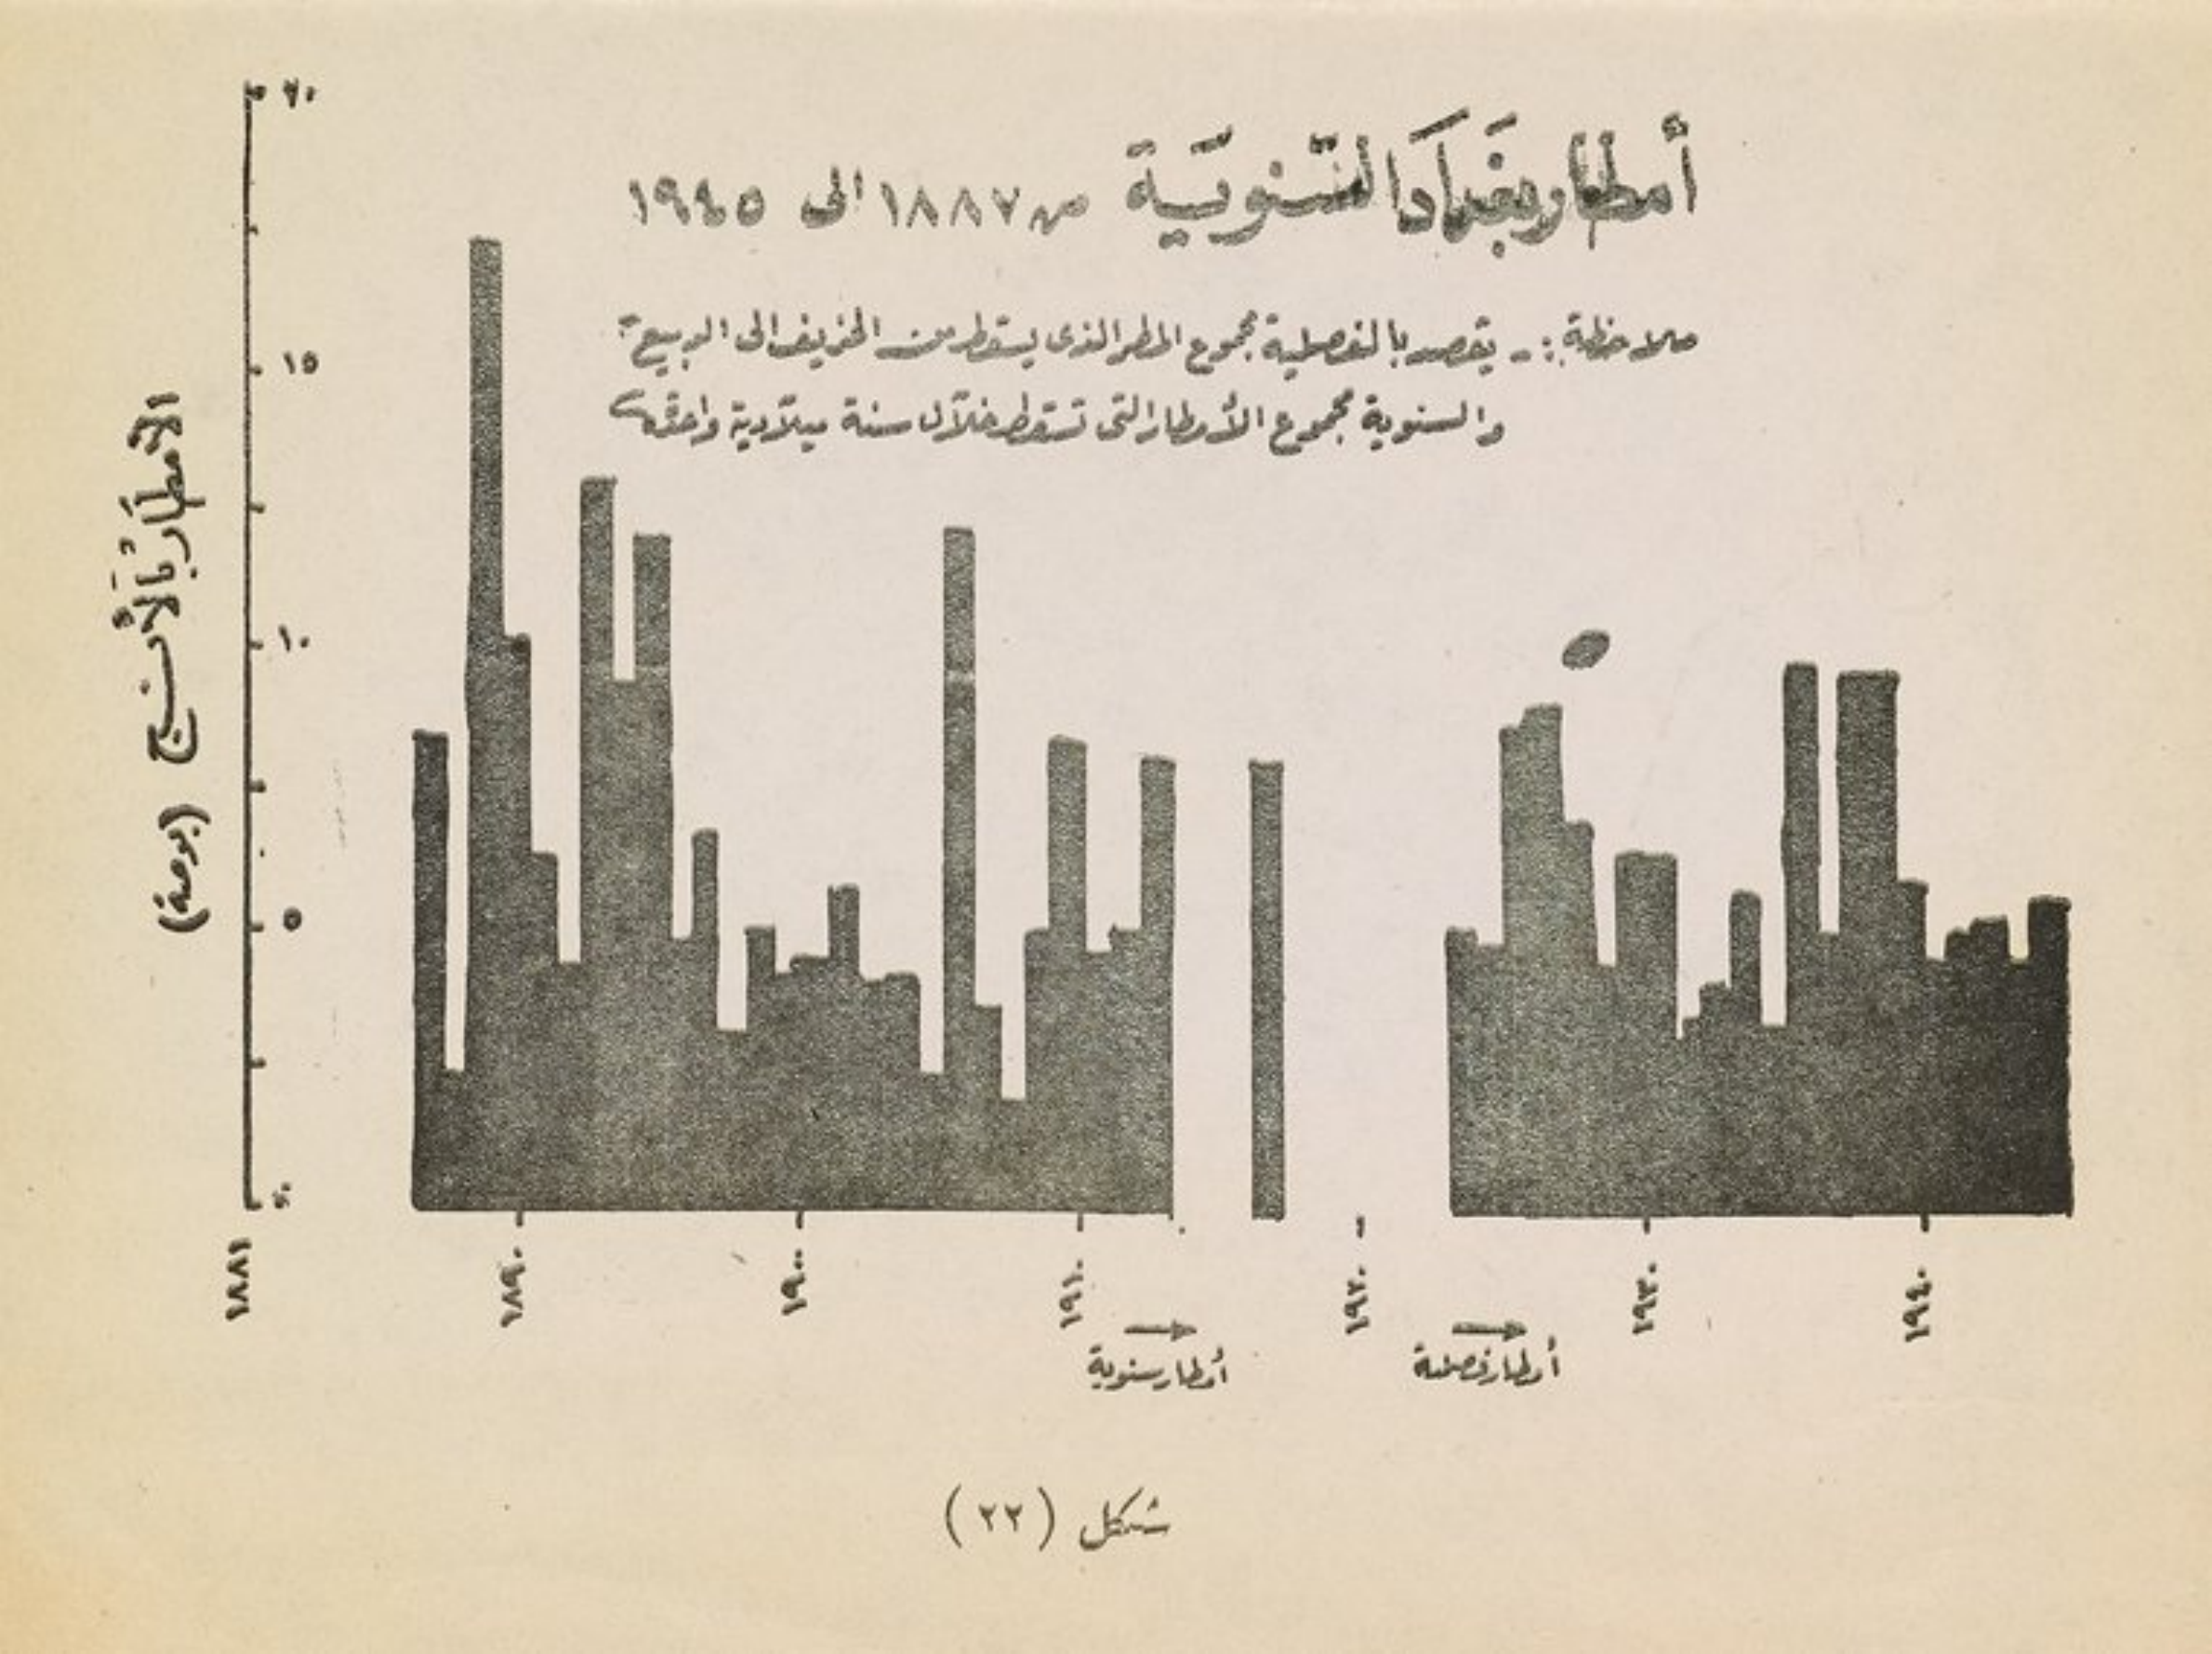 أمطار بغداد السنوية من ١٨٨٧ الى ١٩٤٥
ملاحظة :- يقصد بالفصلية مجموع المطر الذى يسقط من الخريف الى الربيع
والسنوية مجموع الأمطار التى تسقط خلال سنة ميلادية واحدة
الأمطار بالأنج (بوصة)
٢٠
١٥
١٠
٥
٠
١٨٨١
١٨٩٠
١٩٠٠
١٩١٠
١٩٢٠
١٩٣٠
١٩٤٠
أمطار سنوية
أمطار فصلية
شكل (٢٢)